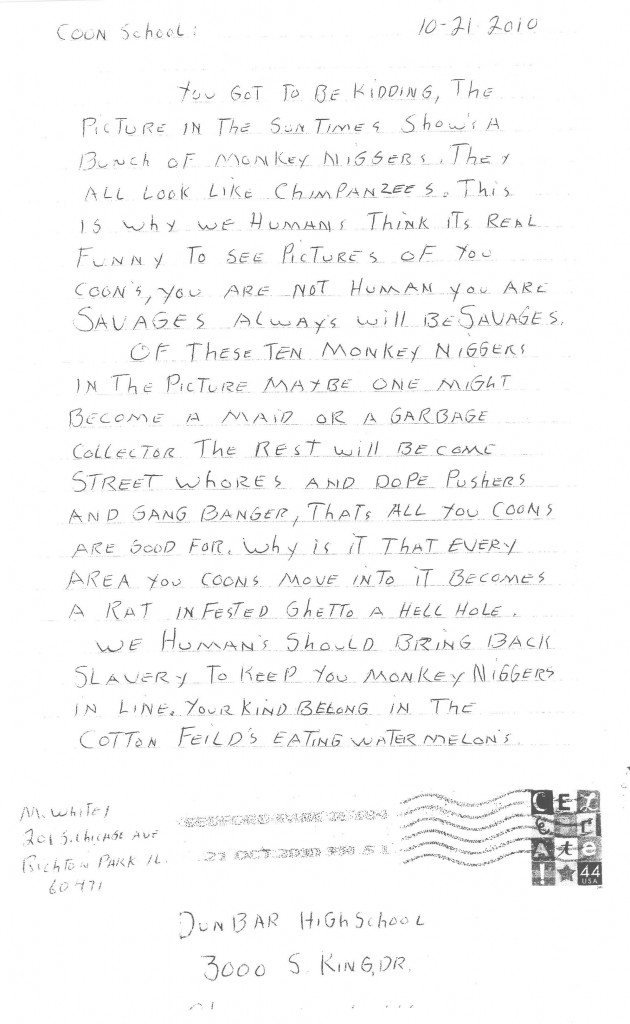 COON SCHOOL:
10-21-2010
YOU GOT TO BE KIDDING, THE
PICTURE IN THE SUN TIMES SHOW'S A
BUNCH OF MONKEY NIGGERS. THEY
ALL LOOK LIKE CHIMPANZEES. THIS
IS WHY WE HUMANS THINK ITS REAL
FUNNY TO SEE PICTURES OF YOU
COON'S, YOU ARE NOT HUMAN YOU ARE
SAVAGES ALWAYS WILL BE SAVAGES.
OF THESE TEN MONKEY NIGGERS
IN THE PICTURE MAYBE ONE MIGHT
BECOME A MAID OR A GARBAGE
COLLECTOR THE REST WILL BECOME
STREET WHORES AND DOPE PUSHERS
AND GANG BANGER, THATS ALL YOU COONS
ARE GOOD FOR. WHY IS IT THAT EVERY
AREA YOU COONS MOVE INTO IT BECOMES
A RAT INFESTED GHETTO A HELL HOLE.
WE HUMAN'S SHOULD BRING BACK
SLAVERY TO KEEP YOU MONKEY NIGGERS
IN LINE. YOUR KIND BELONG IN THE
COTTON FEILD'S EATING WATERMELON'S.
M. WHITEY
201 S. CHICAGO AVE
RICHTON PARK IL.
60471
BEDFORD PARK IL
21 OCT 2010 PM
CELEBRATE!
44
USA
DUNBAR HIGH SCHOOL
3000 S. KING, DR.